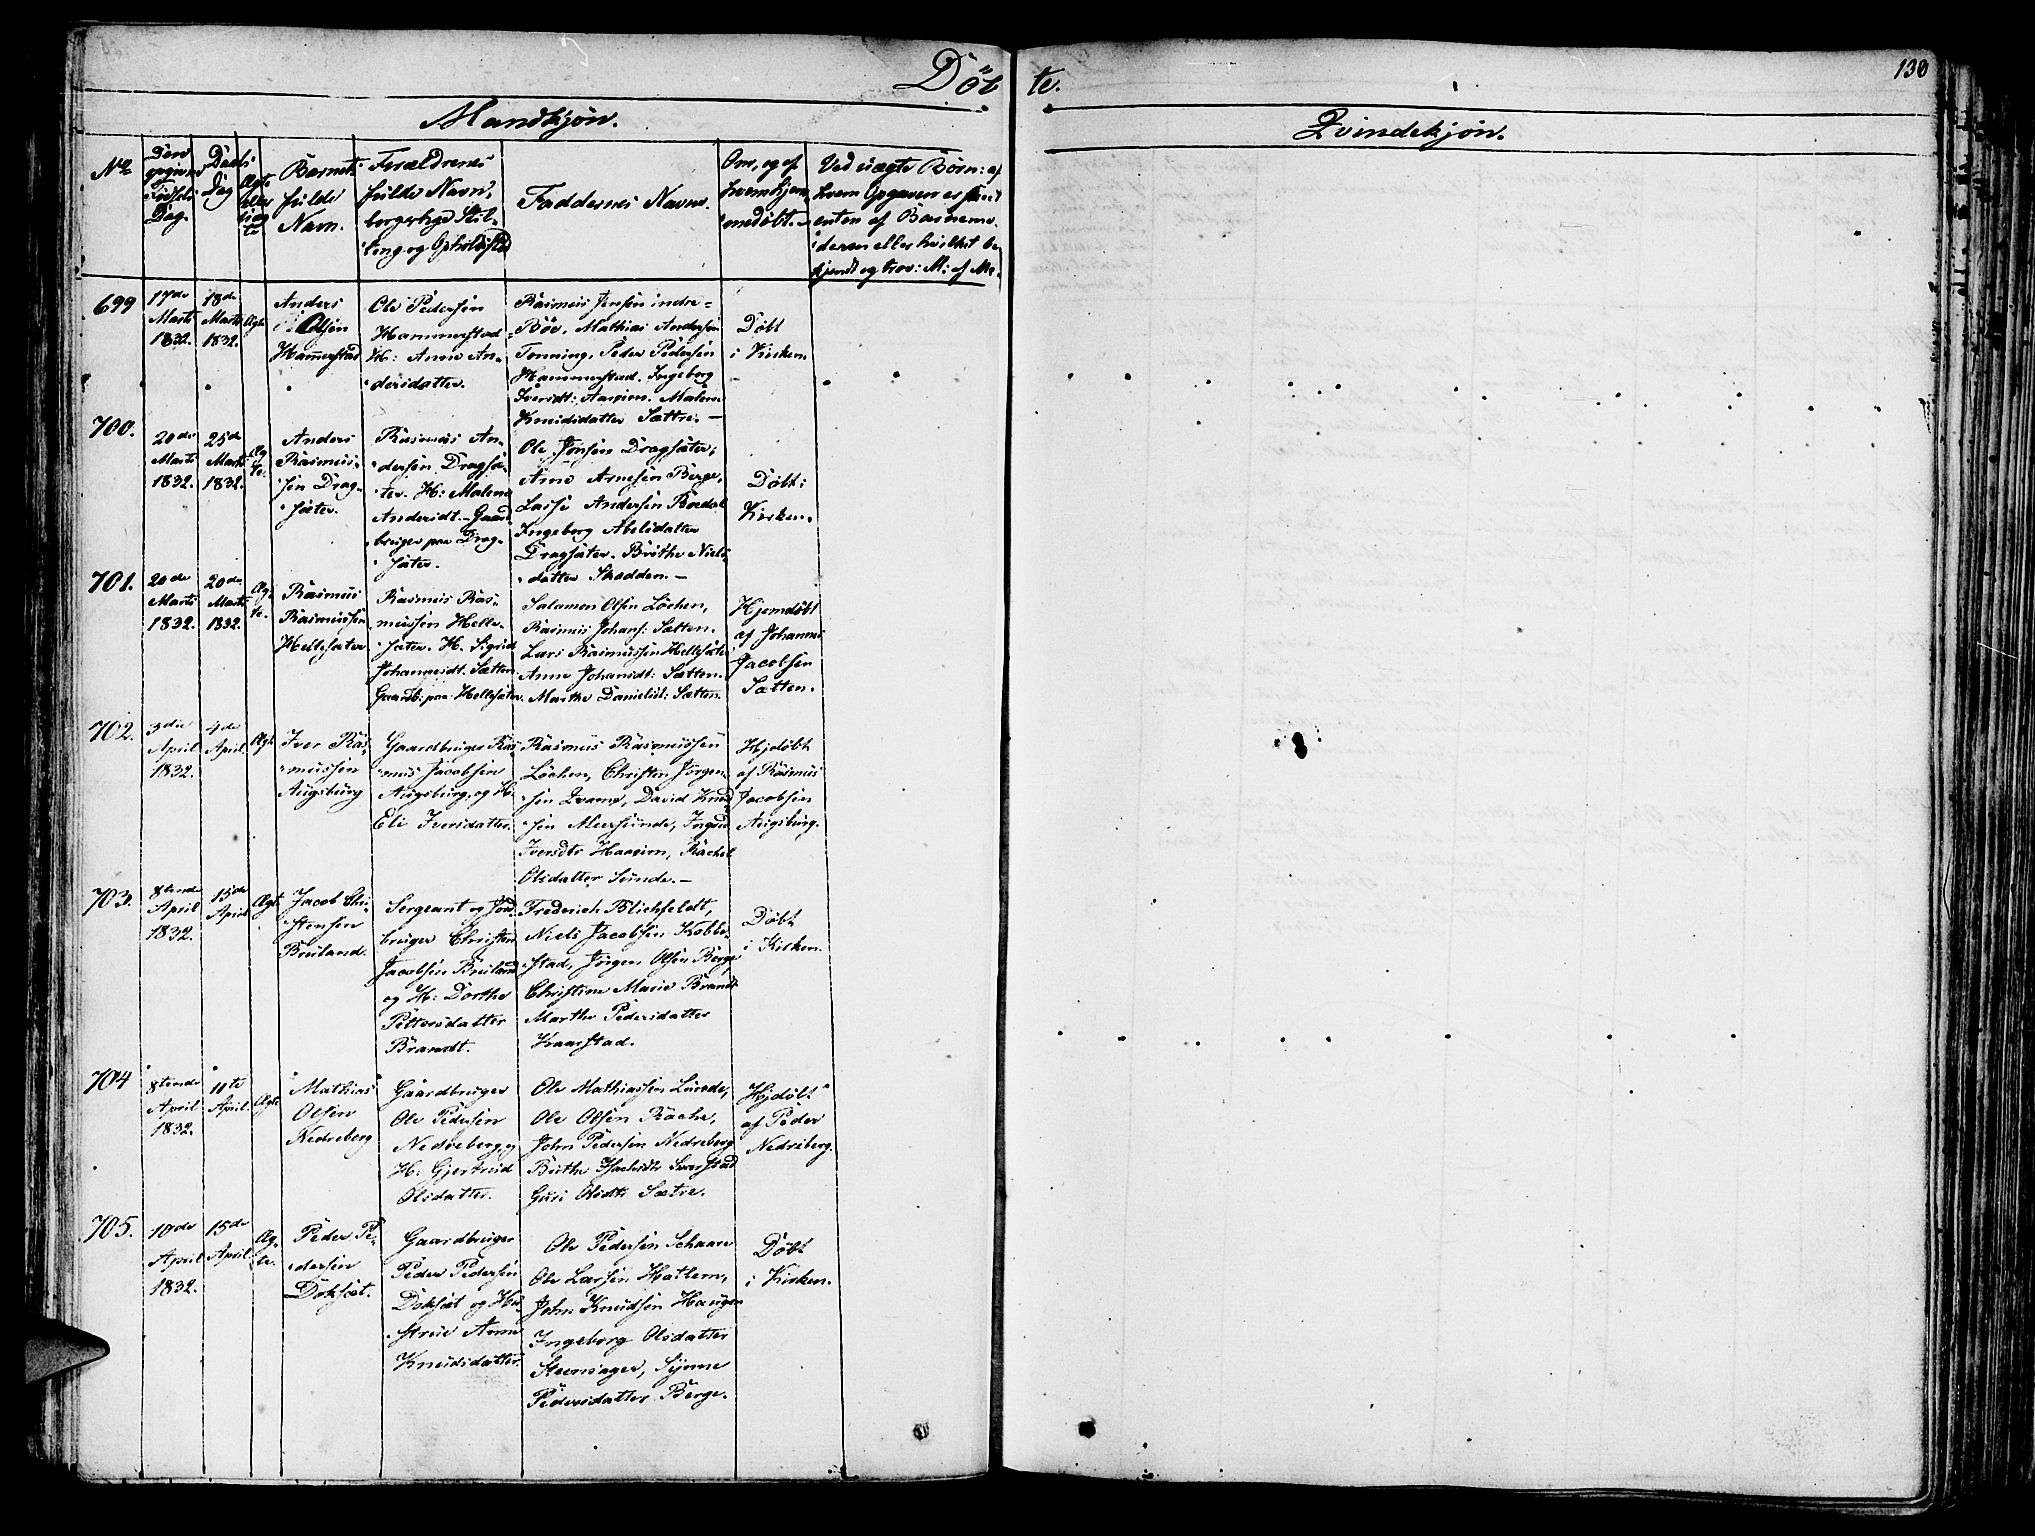 Døbte.
130
Mandkjøn.
Qvindekjøn.
No
Den opgivne Fødsels Dag.
Daabs Dag
Ægte eller uægte
Barnets fulde Navn.
Forældrenes fulde Navn, borgerlige Stilling og Opholdssted
Faddernes Navne.
Om, og af hvem hjemmedøbt.
Ved uægte Børn: af
hvem Opgaven er skeet
enten af Barnemo-
deren eller hvilket be-
kjendt og trov: M: af Me-
699
17de Marts 1832.
18de Marts 1832.
Ægte
Anders
Olsen
Hammerstad
Ole Pedersen
Hammerstad
H: Anne An-
dersdatter.
Rasmus Jensen indre-
Bøe, Mathias Andersen
Tonning, Peder Pedersen
Hammerstad. Ingeborg
Iversdt: Aarseim. Malene
Knudsdatter Sættre. —
Døbt
i Kirken.
700.
20de Marts 1832.
25de Marts 1832.
Ægte.
Anders
Rasmus-
sen Drag-
sæter.
Rasmus An-
dersen Dragsæ-
ter. H: Malene
Andersdt. Gaard-
bruger paa Drag-
sæter.
Ole Jonsen Dragsæter,
Arne Arnesen Berge,
Lasse Andersen
Ingeborg Abelsdatter
Dragsæter. Brithe Niels-
datter Skodden. —
Døbt i
Kirken.
701.
20de Marts 1832.
20de Marts 1832.
Ægte.
Rasmus
Rasmussen
Hellesæter
Rasmus Ras-
mussen Helle-
sæter. H. Sigrid
Johannesdt. Sætten
Gaardb: paa Hellesæter.
Salamon Olsen Løchen,
Rasmus Johans: Sætten.
Lars Rasmussen Hellesæter
Anne Johansdt: Sætten.
Marthe Danielsd: Sætten.
Hjemdøbt
af Johannes
Jacobsen
Sætten.
702.
3die April 1832.
4de April.
Ægte
Iver Ras-
mussen
Augsburg
Gaardbruger Ras-
mus Jacobsen
Augsburg, og H:
Eli Iversdatter.
Rasmus Rasmussen
Løchen, Christen Jørgen-
sen Qvame, David Knud-
sen Meersunde, Ingrid
Iversdtr Haaeim, Rachel
Olsdatter Sunde. —
Hjdøbt
af Rasmus
Jacobsen
Augsburg.
703.
8tende April 1832.
15de April
Ægte
Jacob Chri-
stensen
Bruland.
Sergeant og Jord-
bruger Christen
Jacobsen Bruland
og H: Dorthe
Pettersdatter
Brandt.
Frederich Blichfeldt,
Niels Jacobsen Kobbe-
stad, Jørgen Olsen Berge
Christine Marie Brandt
Marthe Pedersdatter
Kaarstad.
Døbt
i Kirken.
704
8tende April 1832.
11te April.
Ægte
Mathias
Olsen
Nedreberg
Gaardbruger
Ole Pedersen
Nedreberg og
H: Gjertrud
Olsdatter.
Ole Mathiassen Lunde,
Ole Olsen Rache,
John Pedersen Nedreberg
Brithe Isachsdtr
Guri Olsdtr Sætre.
Hjdøbt
af Peder
Nedreberg.
705.
10de April 1832.
15de April.
Ægte.
Peder Pe-
dersen
Doksæt.
Gaardbruger
Peder Pedersen
Doksæt og Hu-
strue Anne
Knudsdatter.
Ole Pedersen Schaare
Ole Larsen Hatlem,
John Knudsen Haugen
Ingeborg Olsdatter
Steensager, Synne
Pedersdatter Berge.
Døbt
i Kirken.